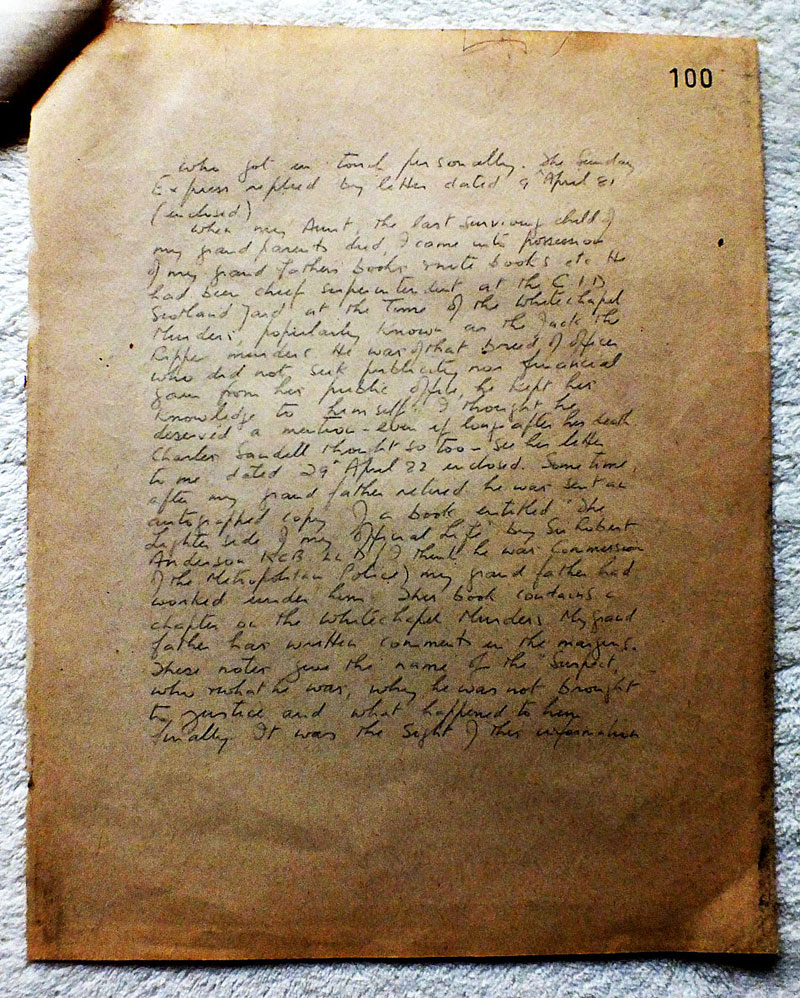 100
who got in touch personally. The Sunday
Express replied by letter dated 9th April 81
(enclosed)
When my Aunt, the last surviving child of
my grand parents died, I came into possession
of my grand fathers books note books etc He
had been chief superintendent at the C.I.D.
Scotland Yard at the Time of the Whitechapel
Murders, popularly known as the Jack the
Ripper murders. He was of that breed of officer
who did not seek publicity nor financial
gain from his public office, he kept his
knowledge to himself. I thought he
deserved a mention - even if long after his death
Charles Sandell thought so too - see his letter
to me dated 29th April 82 enclosed. Some time,
after my grand father retired he was sent an
autographed copy of a book entitled "The
Lighter side of my Official Life" by Sir Robert
Anderson KCB LLD (I think he was Commission
of the Metropolitan Police) my grand father had
worked under him. This book contains a
chapter on the Whitechapel Murders. My grand
father has written comments in the margins.
These notes give the name of the "Suspect,
who & what he was, why he was not brought
to justice and what happened to him
finally. It was the sight of this information